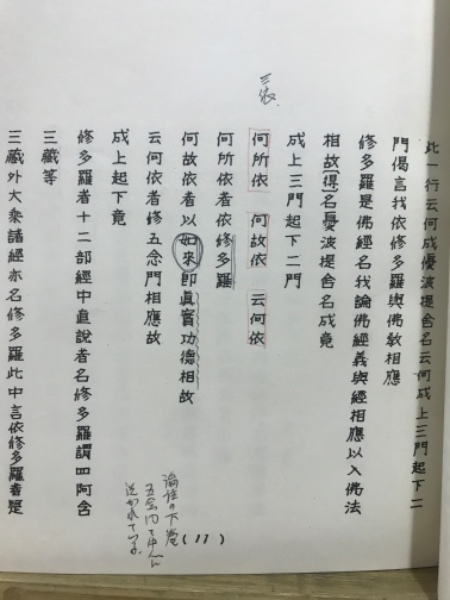 三依
此一行云何成優波提舍名云何成上三門起下二
門偈言我依修多羅與佛教相應
修多羅是佛經名我論佛經義與經相應以入佛法
相故[得]名優波提舍名成竟
成上三門起下二門
何所依 何故依 云何依
何所依者依修多羅
何故依者以如來即真實功德相故
云何依者修五念門相應故
成上起下竟
修多羅者十二部經中直說者名修多羅謂四阿含
三藏等
三藏外大乘諸經亦名修多羅此中言依修多羅者是
(11)